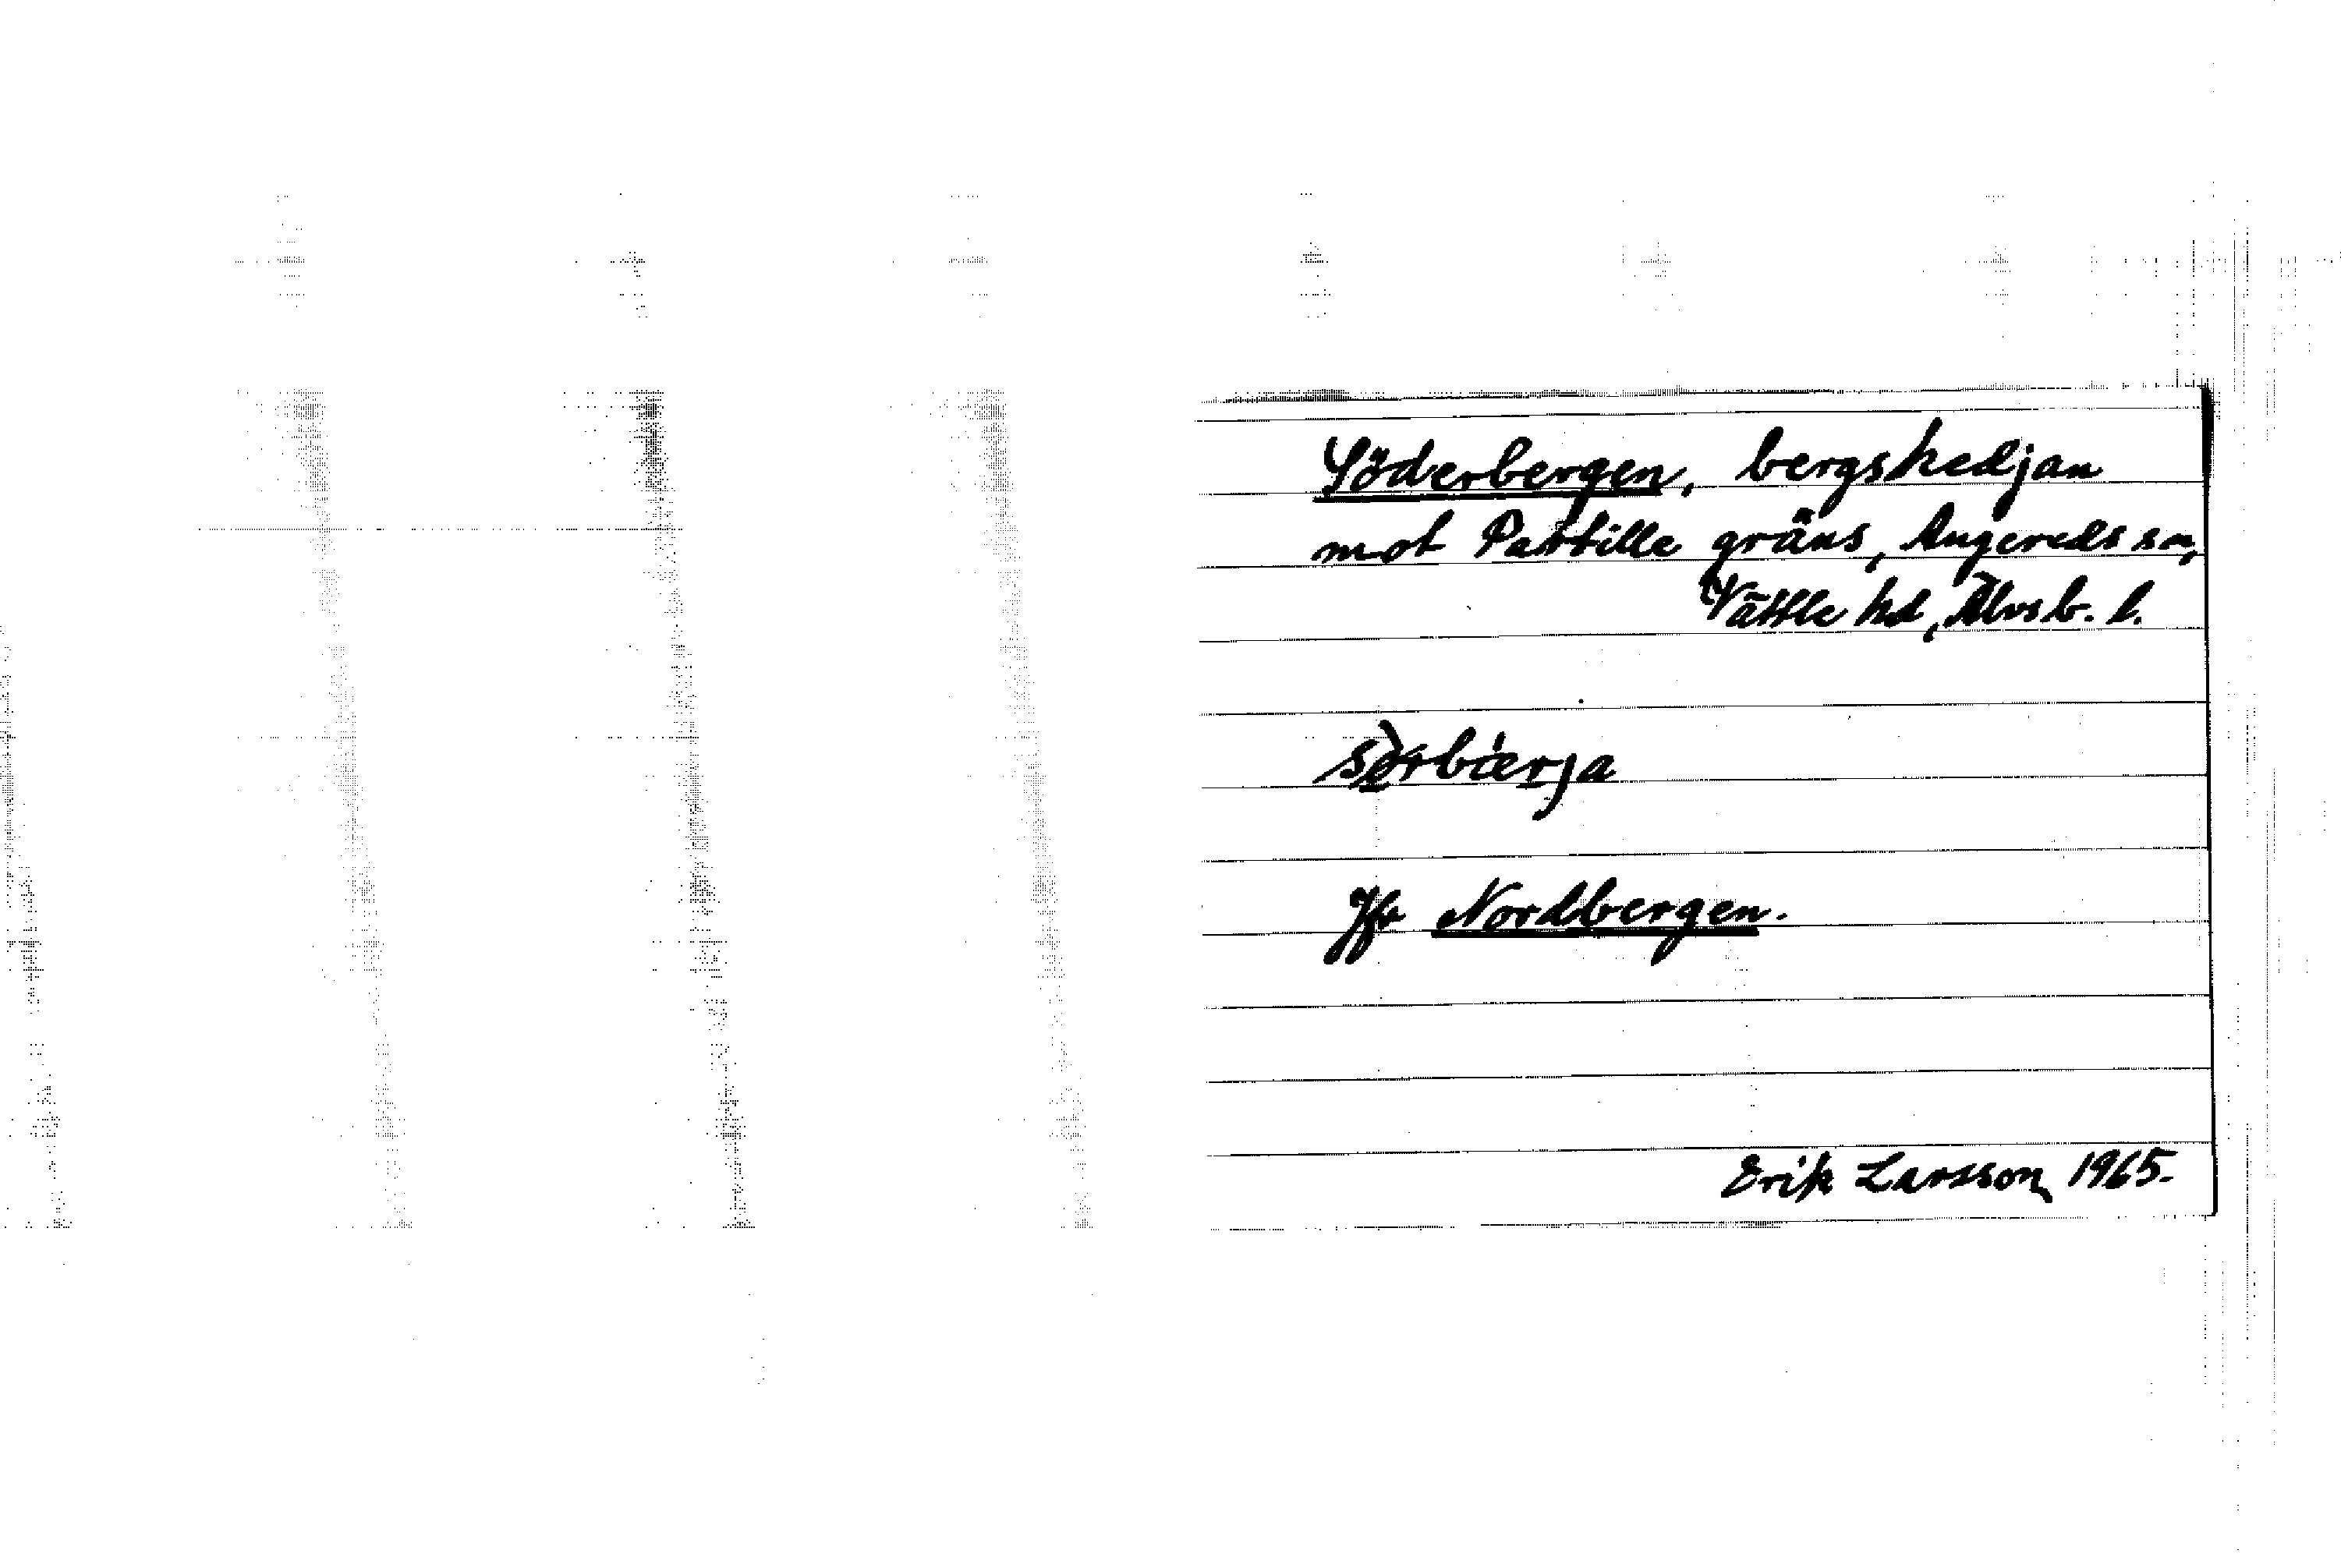 Söderbergen, bergskedjan
mot Partille gräns, Angereds sn,
Vättle hd, Älvsb. l.
Jfr Nordbergen.
Erik Larsson 1965.